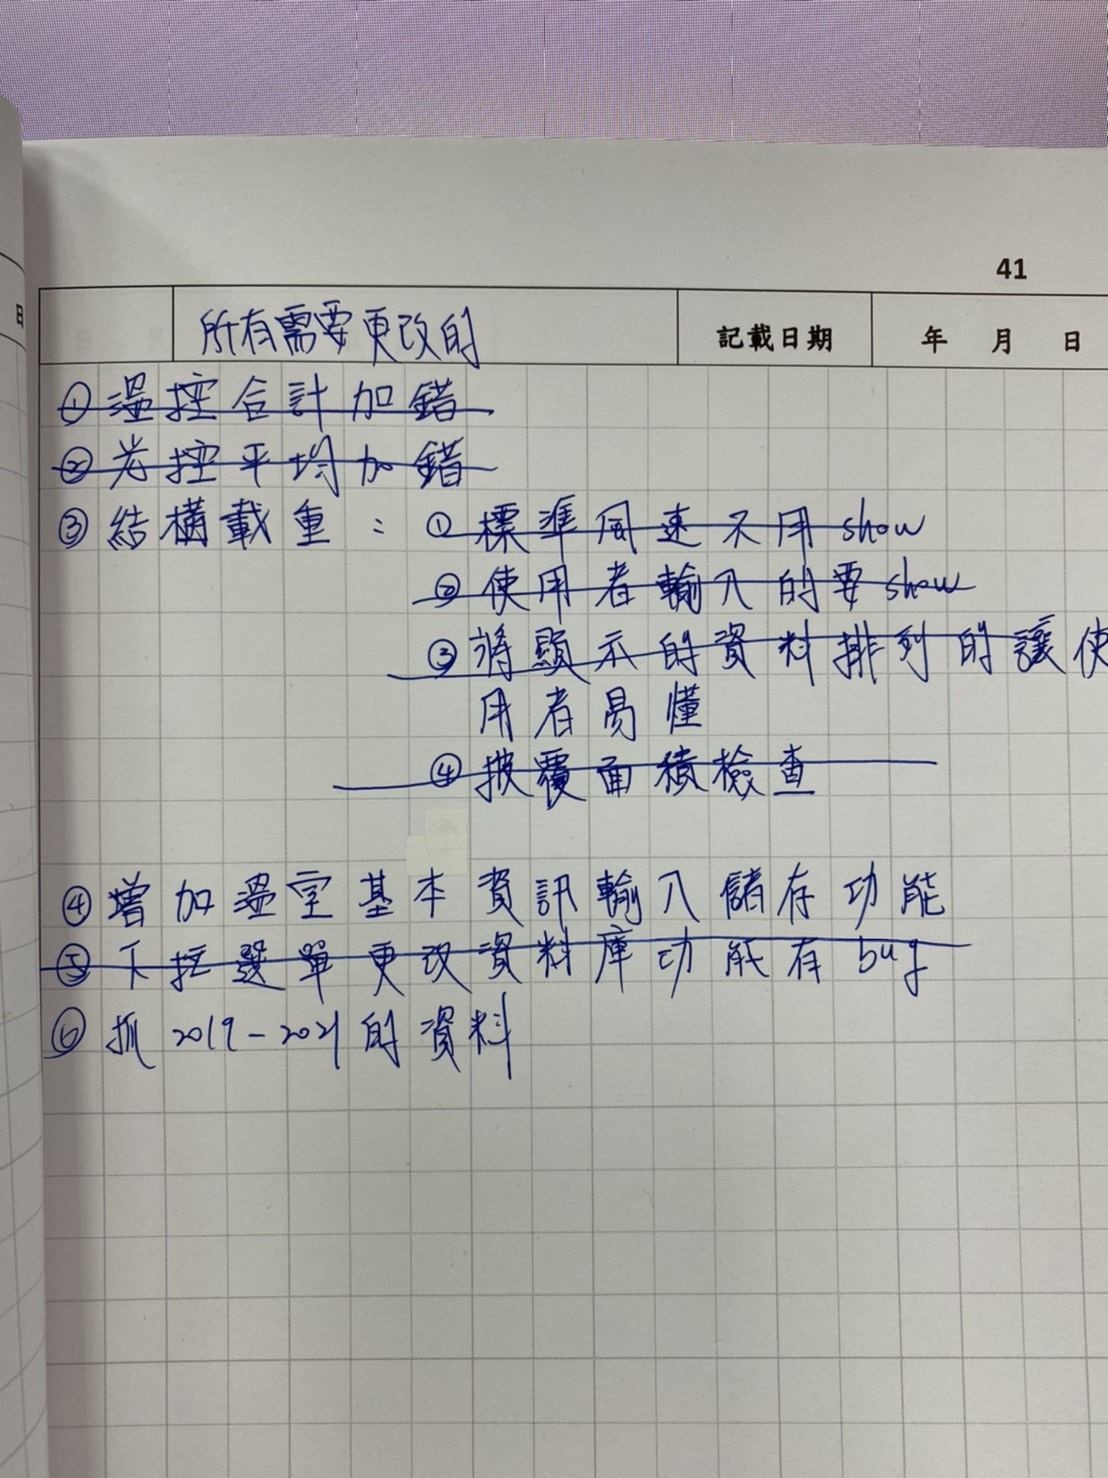 41
日
所有需要更改的 記載日期 年 月 日
① 溫控合計加錯
② 光控平均加錯
③ 結構載重： ① 標準風速不用 show
② 使用者輸入的要 show
③ 將顯示的資料排列的讓使
用者易懂
④ 披覆面積檢查
④ 增加溫室基本資訊輸入儲存功能
⑤ 下拉選單更改資料庫功能有 bug
⑥ 抓 2019-2021 的資料